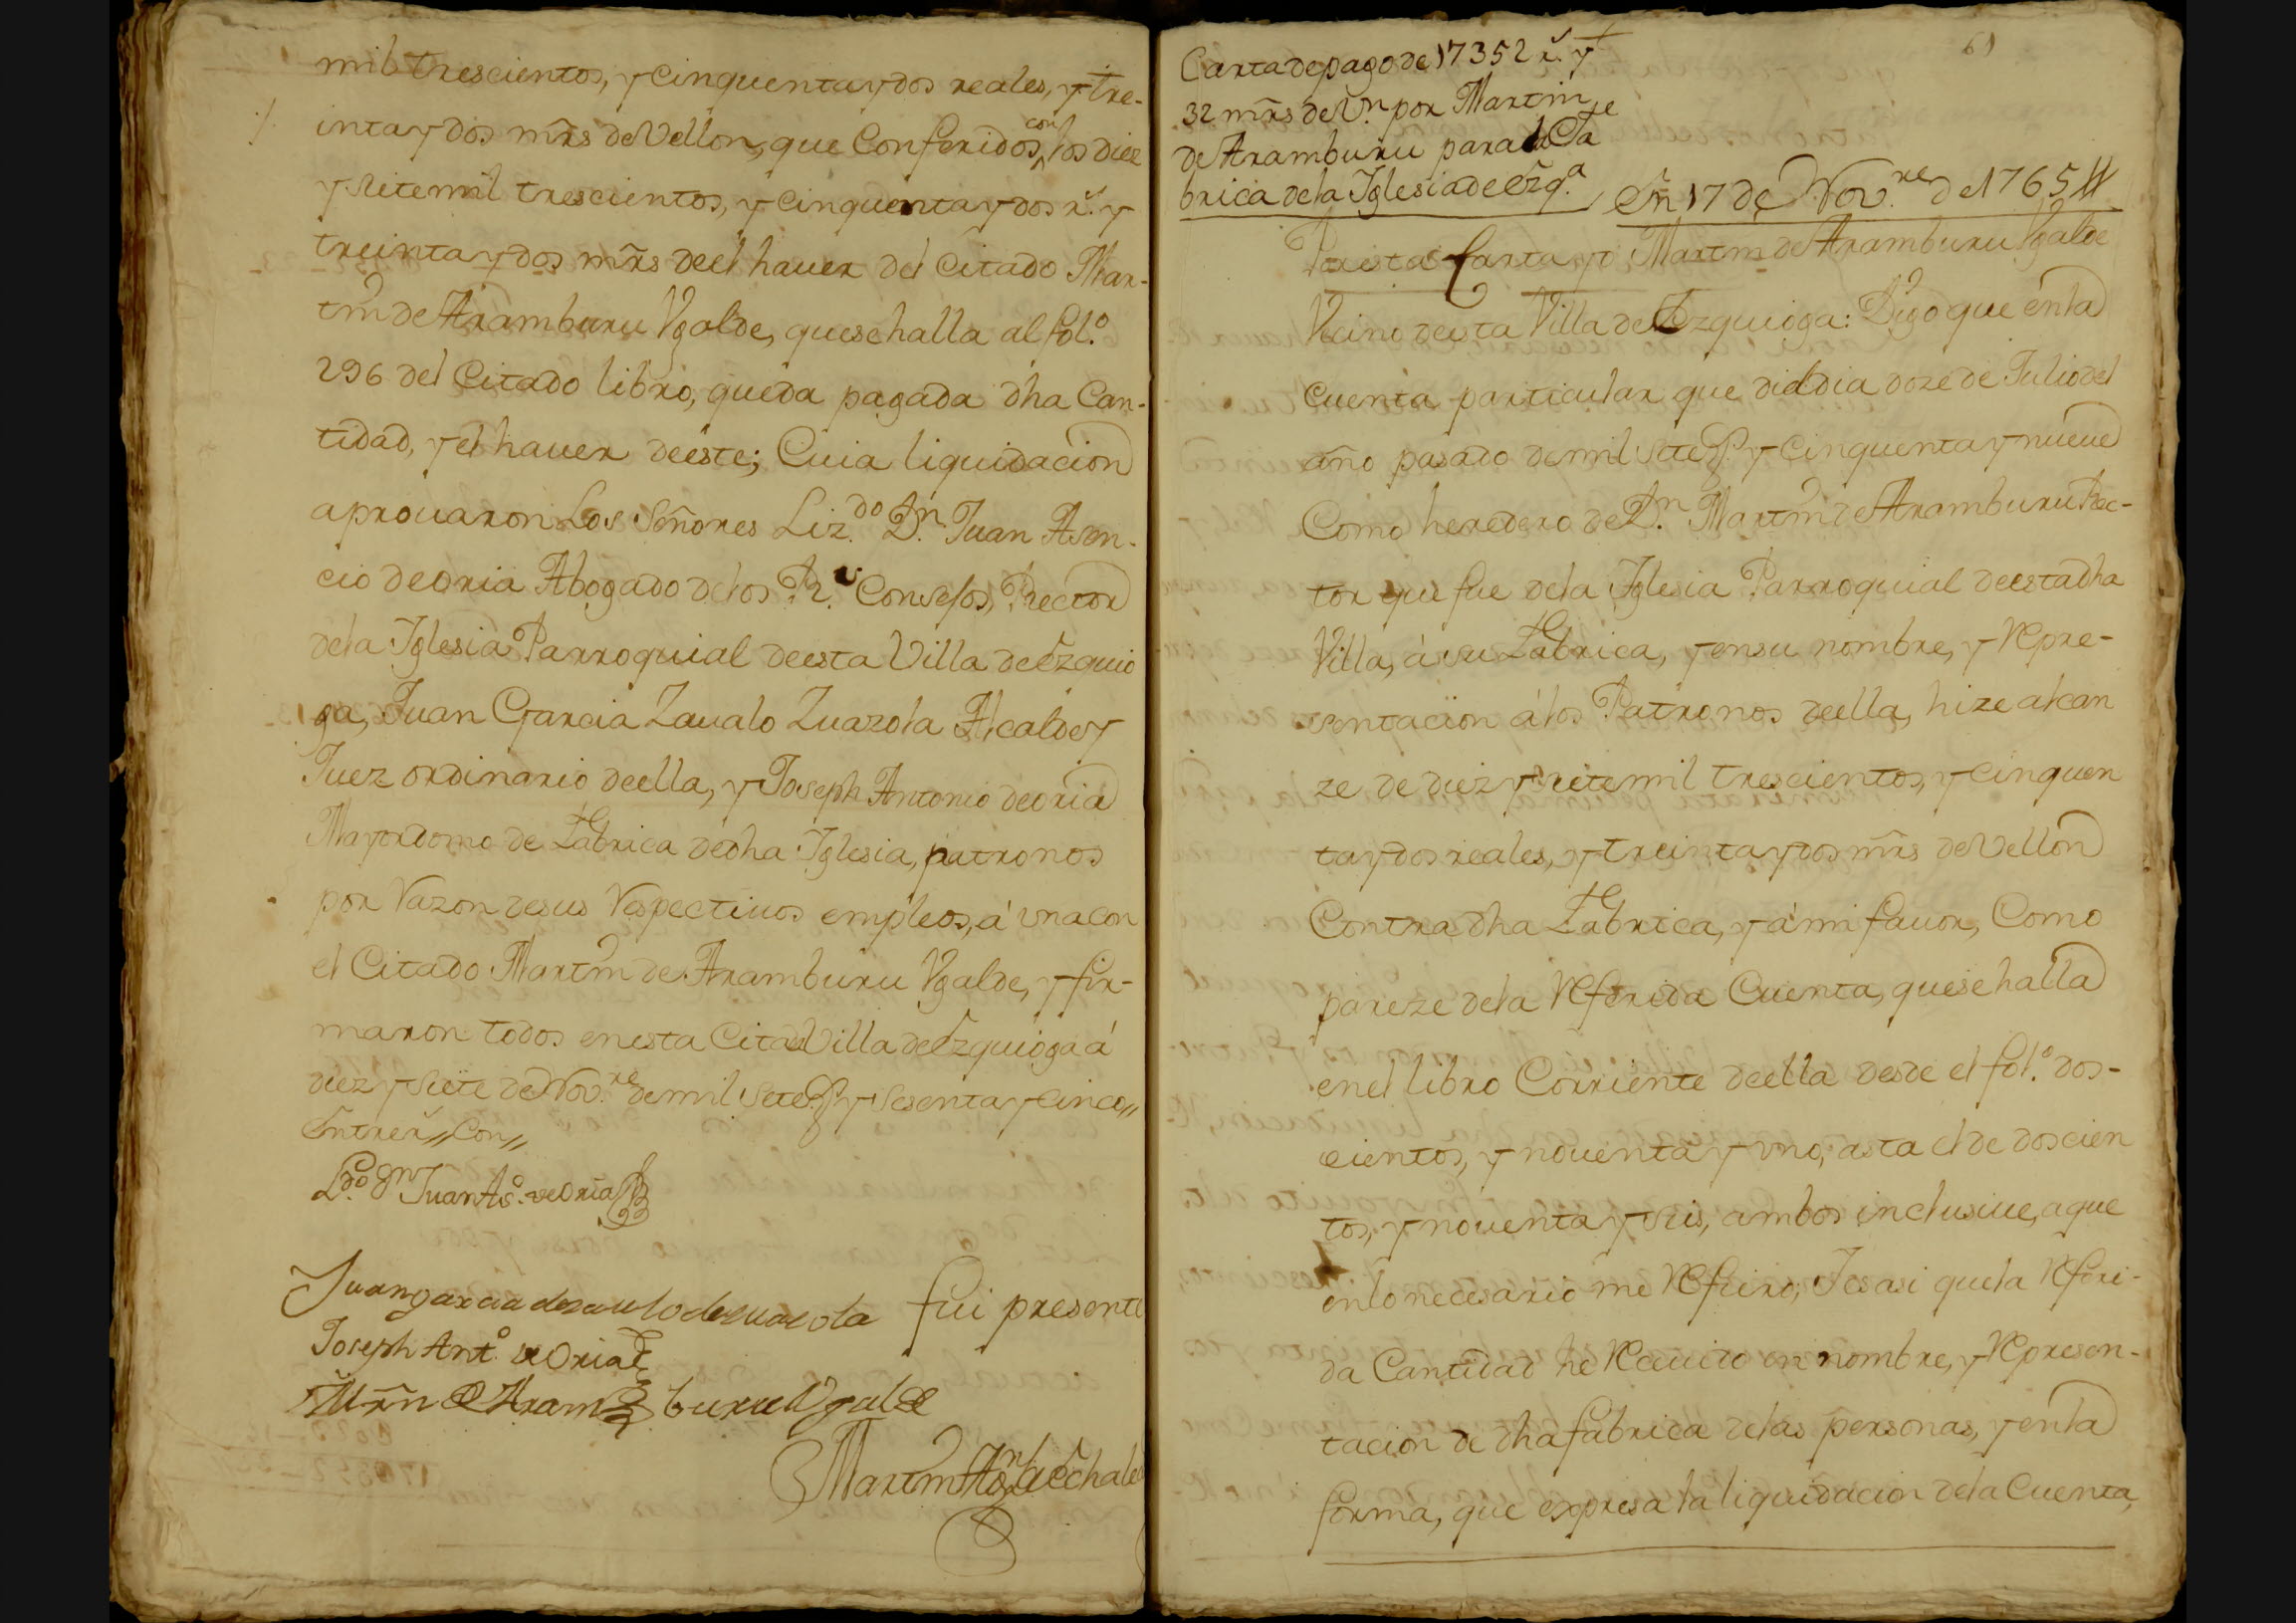 mil trescientos, y cinquenta y dos reales, y tre-
inta y dos mrs de Vellon, que Conferidos con los diez
y siete mil trescientos, y cinquenta y dos rs. y
treinta y dos mrs deel hauer del citado Mar-
tin de Aramburu Vgalde, que se halla al fol.º
296 del Citado libro, queda pagada dha Can-
tidad, y el hauer deeste; Cuia liquidacion
aprouaron Los Señores Liz.do Dn. Juan Asen-
cio de Oria Abogado de los Rs. Consejos, Rector
de la Iglesia Parroquial de esta Villa de Ezquio
ga, Juan Garcia Zaualo Zuazola Alcalde y
Juez ordinario de ella, y Joseph Antonio de oria
Mayordomo de Fabrica de dha Iglesia, patronos
por Razon de sus Respectiuos empleos, á vna con
el Citado Martin de Aramburu Vgalde, y fir-
maron todos en esta Citada Villa de Ezquioga á
diez y siete de Nov.re de mil sete.s y sesenta y cinco,,
Entrer.,, Con,,
Ldo. Dn Juan As.o de Oria
Juan garcia de zaualo de zuazola fui presente
Joseph Ant.o de Oria
Mrn de Aramburu Vgalde
Martin
61
Carta de pago de 17352 rs. y
32 mrs de Vn. por Martin
de Aramburu para la Fa
brica de la Iglesia de Ezq.a
En 17 de Nov.re de 1765
Por esta Carta yo Martin de Aramburu Vgalde
Vecino de esta Villa de Ezquioga: Digo que en la
Cuenta particular que di el dia doze de Julio del
año pasado de mil sete.s y cinquenta y nueue
Como heredero de Dn. Martin de Aramburu Rec-
tor que fue de la Iglesia Parroquial de esta dha
Villa, á su Fabrica, y en su nombre, y Repre-
sentacion á los Patronos de ella, hize alcan
ze de diez y siete mil trescientos, y cinquen
ta y dos reales, y treinta y dos mrs de Vellon
Contra dha Fabrica, y á mi fauor, Como
pareze de la Referida Cuenta, que se halla
en el libro Corriente de ella desde el fol.º dos-
cientos, y nouenta y vno, asta el de doscien
tos, y nouenta y seis, ambos inclusiue, a que
en lo necesario me Refiero; Y es asi que la Referi-
da Cantidad he Recuido en nombre, y Represen-
tacion de dha fabrica de las personas, y en la
forma, que expresa la liquidacion de la Cuenta,